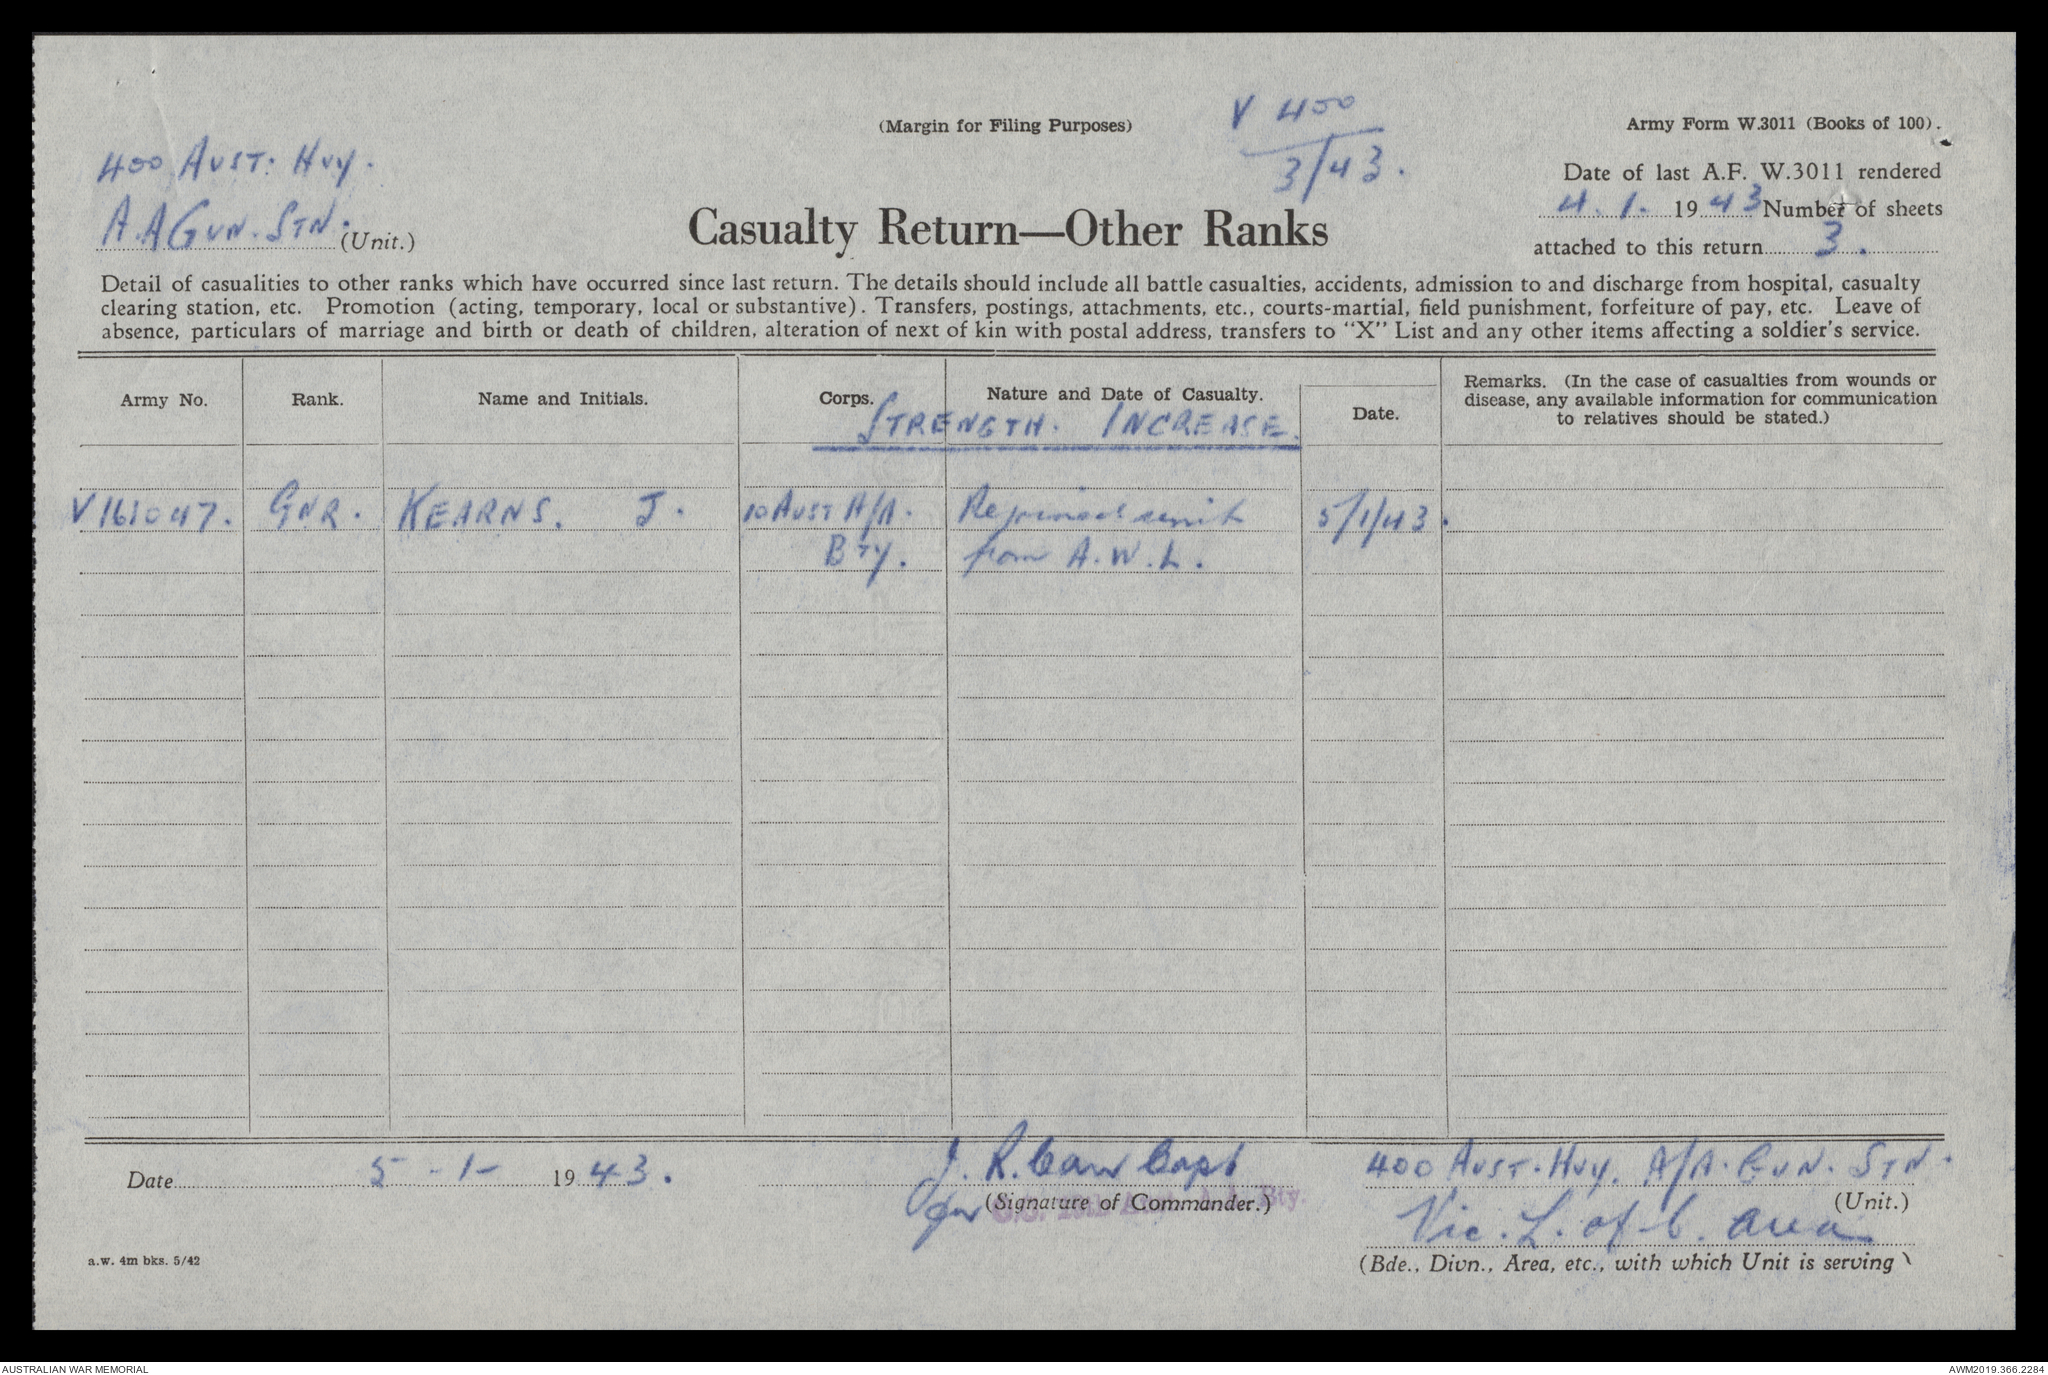 (Margin for Filing Purposes)
V 400
3/43.
Army Form W.3011 (Books of 100).
400 AUST. HVY.
A.A GUN. STN. (Unit.)
Casualty Return—Other Ranks
Date of last A.F. W.3011 rendered
4. 1. 19 43 Number of sheets
attached to this return 3.
Detail of casualities to other ranks which have occurred since last return. The details should include all battle casualties, accidents, admission to and discharge from hospital, casualty
clearing station, etc. Promotion (acting, temporary, local or substantive). Transfers, postings, attachments, etc., courts-martial, field punishment, forfeiture of pay, etc. Leave of
absence, particulars of marriage and birth or death of children, alteration of next of kin with postal address, transfers to "X" List and any other items affecting a soldier's service.
Army No. Rank. Name and Initials. Corps. Nature and Date of Casualty. Date. Remarks. (In the case of casualties from wounds or
disease, any available information for communication
to relatives should be stated.)
STRENGTH. INCREASE.
V161047. GNR. KEARNS. J. 10 AUST A/A. Rejoined unit 5/1/43.
BTY. from A.W.L.
Date 5 - 1 - 19 43. J. R. Capt 400 AUST. HVY. A/A. GUN. STN.
for (Signature of Commander.) Bty. (Unit.)
Vic. L. of C. Area
a.w. 4m bks. 5/42 (Bde., Divn., Area, etc., with which Unit is serving
AUSTRALIAN WAR MEMORIAL AWM2019.366.2284